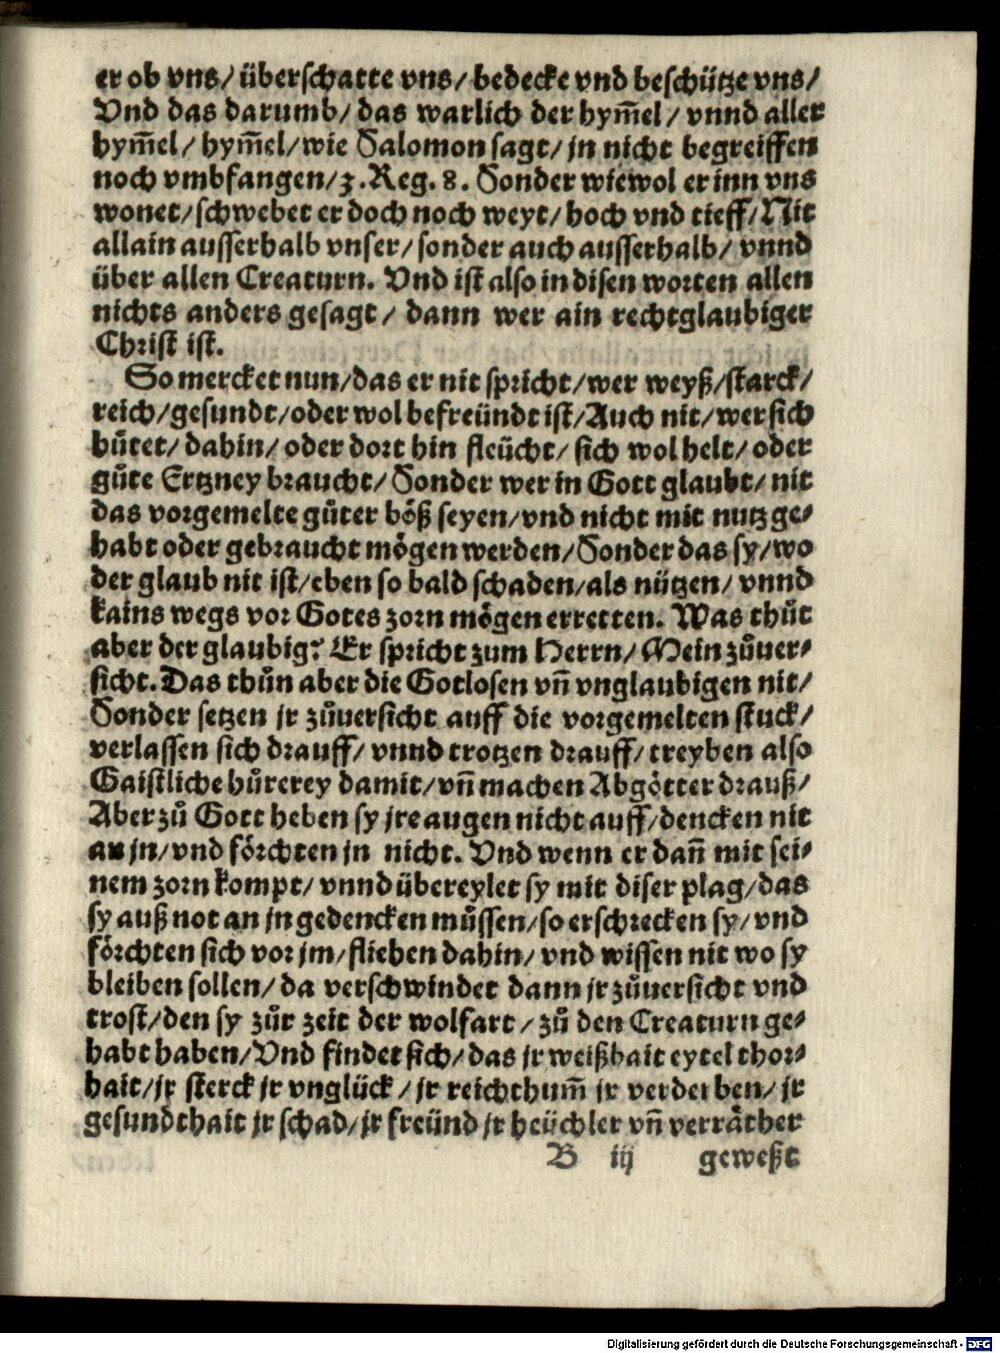 er ob vns/ überschatte vns/ bedecke vnd beschütze vns/
Vnd das darumb/ das warlich der hym̃el/ vnnd aller
hym̃el/ hym̃el/ wie Salomon sagt/ jn nicht begreiffen
noch vmbfangen/ 3. Reg. 8. Sonder wiewol er inn vns
wonet/ schwebet er doch noch weyt/ hoch vnd tieff/ Nit
allain ausserhalb vnser/ sonder auch ausserhalb/ vnnd
über allen Creaturn. Vnd ist also in disen worten allen
nichts anders gesagt/ dann wer ain rechtglaubiger
Christ ist.
So mercket nun/ das er nit spricht/ wer weyß/ starck/
reich/ gesundt/ oder wol befreündt ist/ Auch nit/ wer sich
hůtet/ dahin/ oder dort hin fleücht/ sich wol helt/ oder
gůte Ertzney braucht/ Sonder wer in Gott glaubt/ nit
das vorgemelte gůter böß seyen/ vnd nicht mit nutz ge⸗
habt oder gebraucht mögen werden/ Sonder das sy/ wo
der glaub nit ist/ eben so bald schaden/ als nützen/ vnnd
kains wegs vor Gotes zorn mögen erretten. Was thůt
aber der glaubig? Er spricht zum Herrn/ Mein zůuer⸗
sicht. Das thůn aber die Gotlosen vn̄ vnglaubigen nit/
Sonder setzen jr zůuersicht auff die vorgemelten stuck/
verlassen sich drauff/ vnnd trotzen drauff/ treyben also
Gaistliche hůrerey damit/ vn̄ machen Abgötter drauß/
Aber zů Gott heben sy jre augen nicht auff/ dencken nit
an jn/ vnd förchten jn nicht. Vnd wenn er dan̄ mit sei⸗
nem zorn kompt/ vnnd übereylet sy mit diser plag/ das
sy auß not an jn gedencken můssen/ so erschrecken sy/ vnd
förchten sich vor jm/ fliehen dahin/ vnd wissen nit wo sy
bleiben sollen/ da verschwindet dann jr zůuersicht vnd
trost/ den sy zůr zeit der wolfart/ zů den Creaturn ge⸗
habt haben/ Vnd findet sich/ das jr weißhait eytel thor⸗
hait/ jr sterck jr vnglück/ jr reichthum̃ jr verderben/ jr
gesundthait jr schad/ jr freünd jr heüchler vn̄ verräther
B iij geweßt
Digitalisierung gefördert durch die Deutsche Forschungsgemeinschaft - DFG